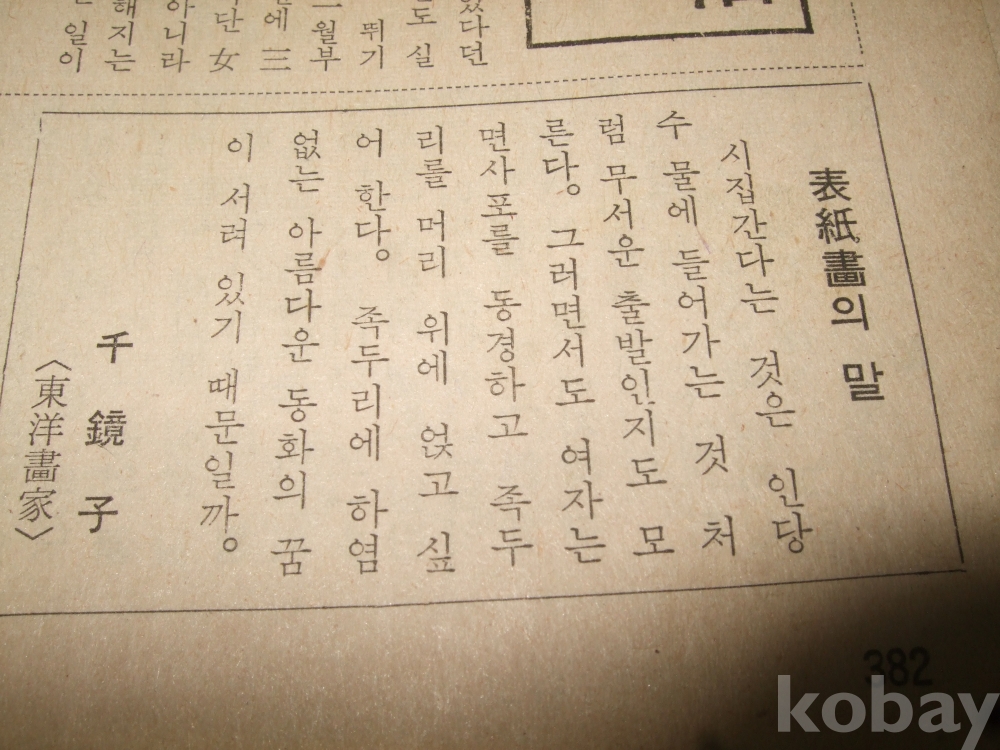 表紙畵의 말
시집간다는 것은 인당
수 물에 들어가는 것 처
럼 무서운 출발인지도 모
른다。 그러면서도 여자는
면사포를 동경하고 족두
리를 머리 위에 얹고 싶
어 한다。 족두리에 하염
없는 아름다운 동화의 꿈
이 서려 있기 때문일까。
千鏡子
〈東洋畵家〉
있다던
도 실
뛰기
一월부
에 三
단 女
아니라
해지는
일이
382
kobay